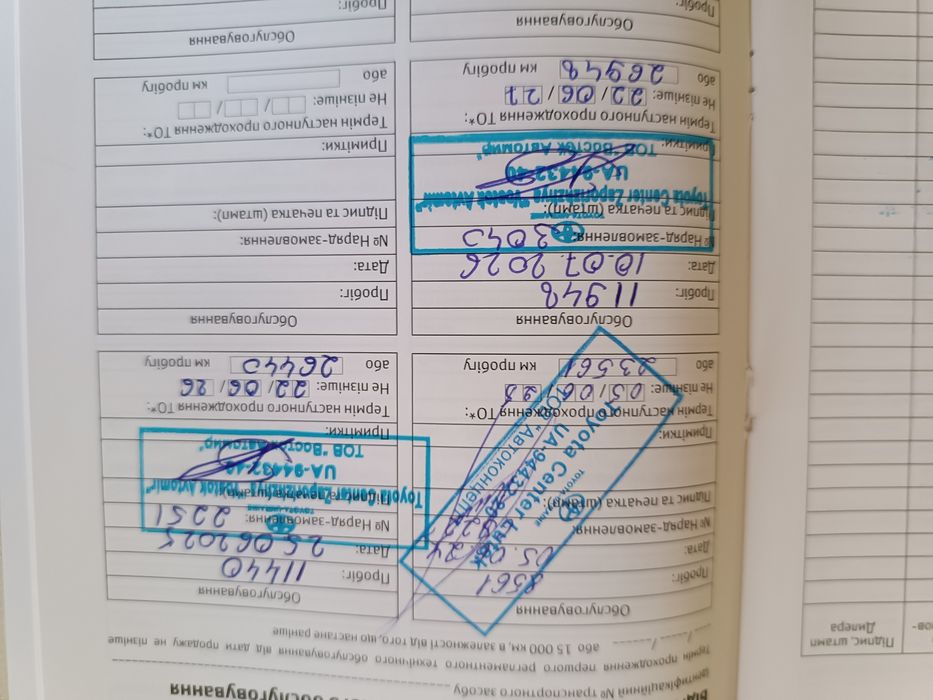 го обслуговування
ідентифікаційний № транспортного засобу
термін проходження першого регламентного технічного обслуговування від дати продажу не пізніше
__/__/__ або 15 000 км, в залежності від того, що настане раніше
Обслуговування
Пробіг: 8561
Дата: 05.0
№ Наряд-замовлення:
Підпис та печатка (штамп):
Toyota Center
UA-94432-80
ТОВ "Автоконцепт"
Примітки:
Термін наступного проходження ТО*:
Не пізніше: 05/06/25
або 23561 км пробігу
Обслуговування
Пробіг: 11440
Дата: 25.06.2025
№ Наряд-замовлення: 2251
Підпис та печатка (штамп):
Toyota Center Zaporizhzhya "Vostok Avtomir"
UA-94432-40
ТОВ "Восток Автомир"
Примітки:
Термін наступного проходження ТО*:
Не пізніше: 22/06/26
або 26440 км пробігу
Обслуговування
Пробіг: 11948
Дата: 10.07.2026
№ Наряд-замовлення: 3045
Підпис та печатка (штамп):
Toyota Center Zaporizhzhya "Vostok Avtomir"
UA-94432-40
ТОВ "Восток Автомир"
Примітки:
Термін наступного проходження ТО*:
Не пізніше: 22/06/27
або 26948 км пробігу
Обслуговування
Пробіг:
Дата:
№ Наряд-замовлення:
Підпис та печатка (штамп):
Примітки:
Термін наступного проходження ТО*:
Не пізніше: / /
або км пробігу
Обслуговування
Пробіг:
Обслуговування
Пробіг:
Підпис, штамп
Дилера